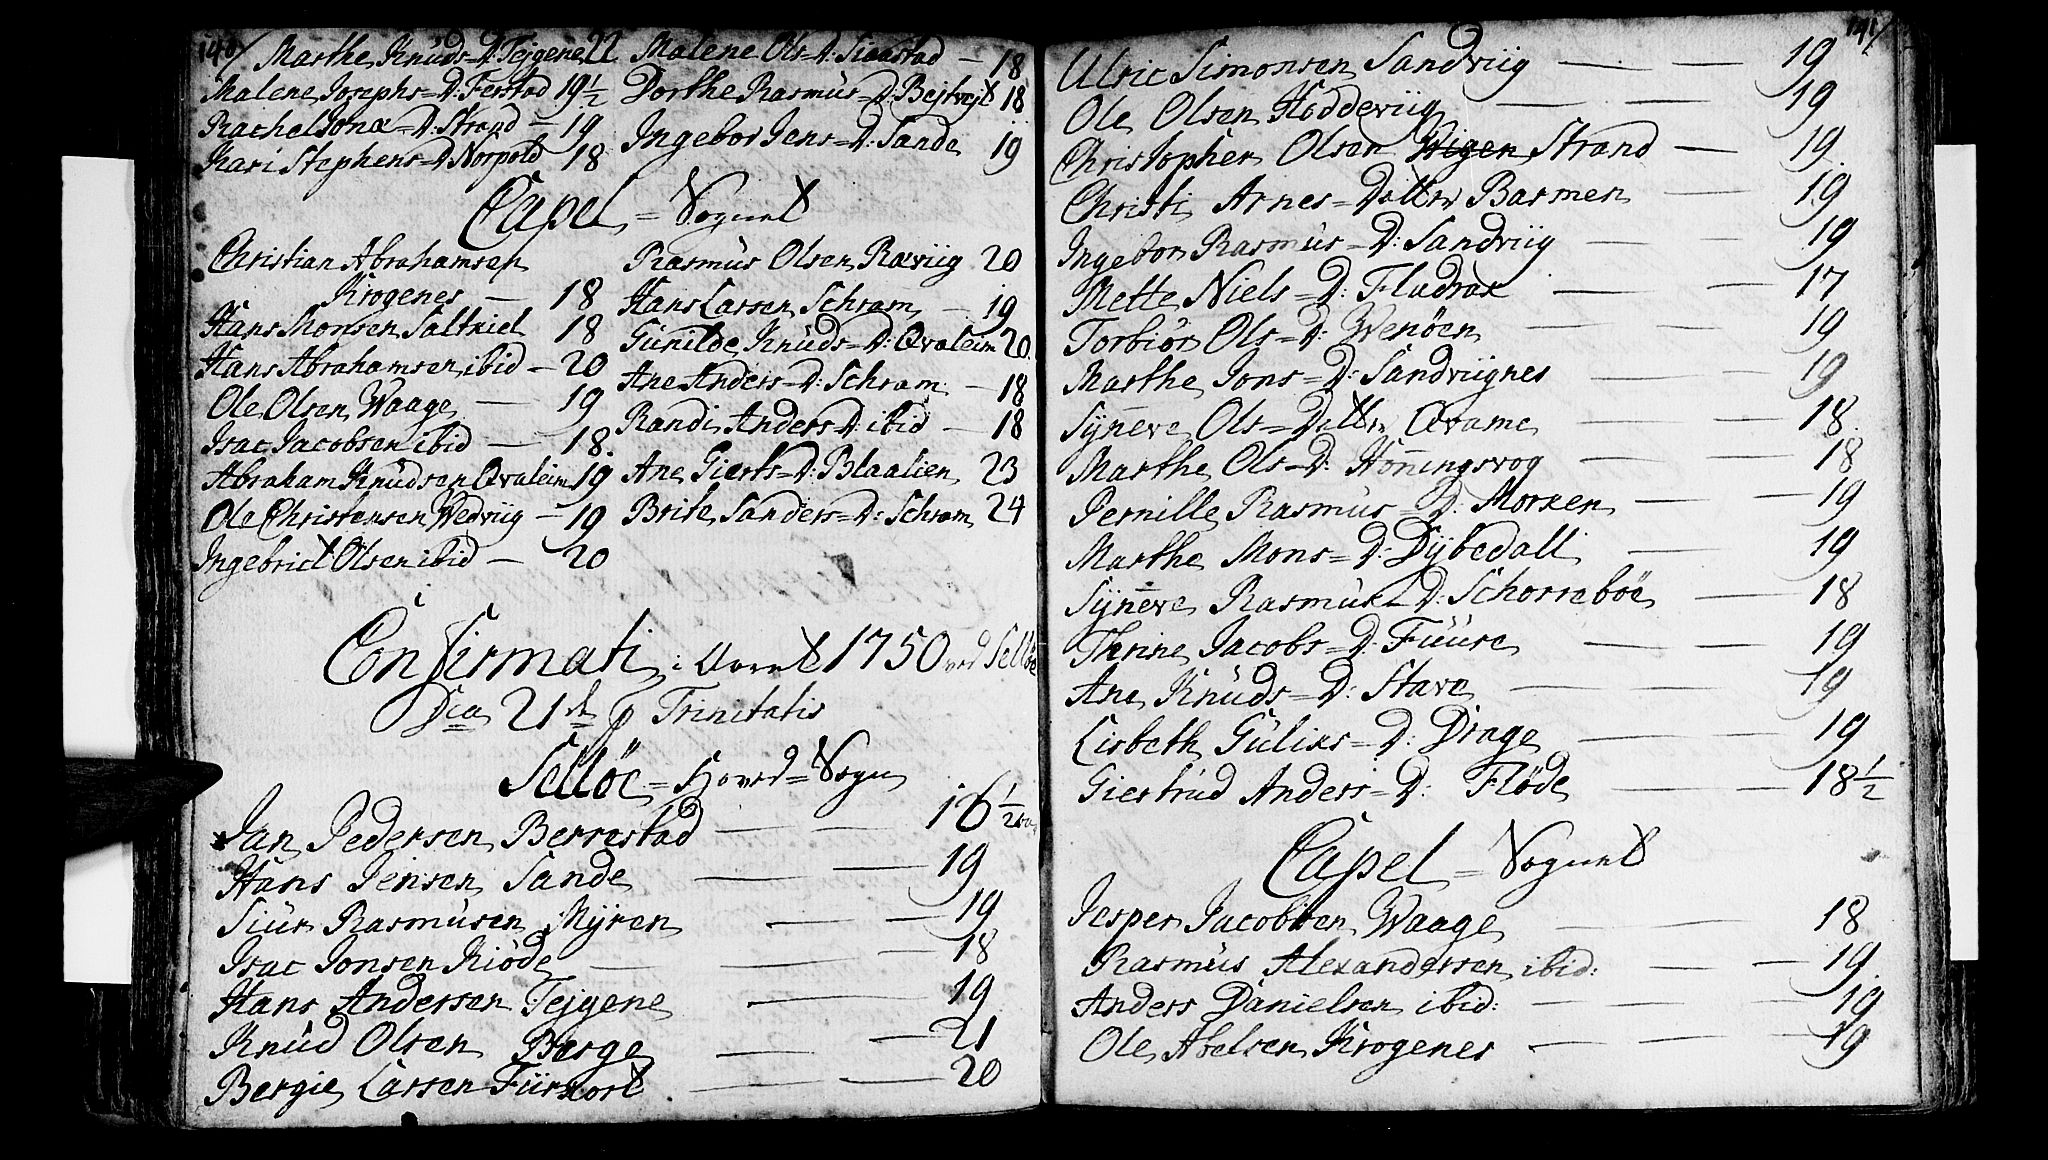 140/
Marthe Knüds=D: Tejgene 22
Malene Josephs=D: Ferstad 19½
Rachel Jonæ=D: Strand — 19
Kari Stephens=D Norpold 18
Malene Ols=D: — 18
Dorthe Rasmus=D: 18
Ingebor Jens=D: Sande 19
Capel = Sognet
Christian Abrahamsen
Krogenes — 18
Hans Monsen Saltkiel 18
Hans Abrahamsen ibid — 20
Ole Olsen Waage — 19
Isac Jacobsen ibid — 18.
Abraham Knüdsen Qvaleim 19
Ole Christensen Wedviig — 19
Ingebrict Olsen ibid — 20
Rasmüs Olsen Ræviig 20
Hans Larsen Schram — 19
Günilde Knüds=D: Qvaleim 20.
Ane Anders=D: Schram — 18
Randi Anders=D: ibid — 18
Ane Gierts=D: Blaalien 23
Brite Sanders=D: Schram 24
Confirmati i Aaret 1750 ved Selløe
Dca 21de p Trinitatis
Selløe = Hoved = Sogn
Jan Pedersen Berrestad — — 16½ aar
Hans Jensen Sande — — 19
Siur Rasmüsen Myren — — 19
Isac Jonsen Kiøde — — 18
Hans Andersen Tejgene — — 19
Knüd Olsen Berge — — 21
Bergie Larsen Fürkort — — 20
141/
Ulric Simonsen Sandviig — — 19
Ole Olsen Hoddeviig — — 19
Christopher Olsen Wigen Strand — 19
Christi Arnes=Datter Barmen — — 19
Ingebor Rasmüs=D: Sandviig — — 19
Mette Niels=D: Fladræe — — 17
Torbiör Ols=D: Wenöen — — 19
Marthe Jons=D: Sandviignes — — 19
Syneve Ols=Datter Qvame — — 18.
Marthe Ols=D: Höningsvog — — 18
Pernille Rasmus=D: Morken — — 19
Marthe Mons=D: Dybedall — — 19
Syneve Rasmus=D: Schorrebøe — — 18
Thrine Jacobs=D: Füüre — — 19
Ane Knüds=D: Stave — — 19
Lisbeth Güliks=D: Drage — — 19
Giertrüd Anders=D: Fløde — — 18½
Capel = Sognet
Jesper Jacobsen Waage — — 18
Rasmüs Alexandersen ibid: — — 19.
Anders Danielsen ibid: — — 19
Ole Abelsen Krogenes — — 19